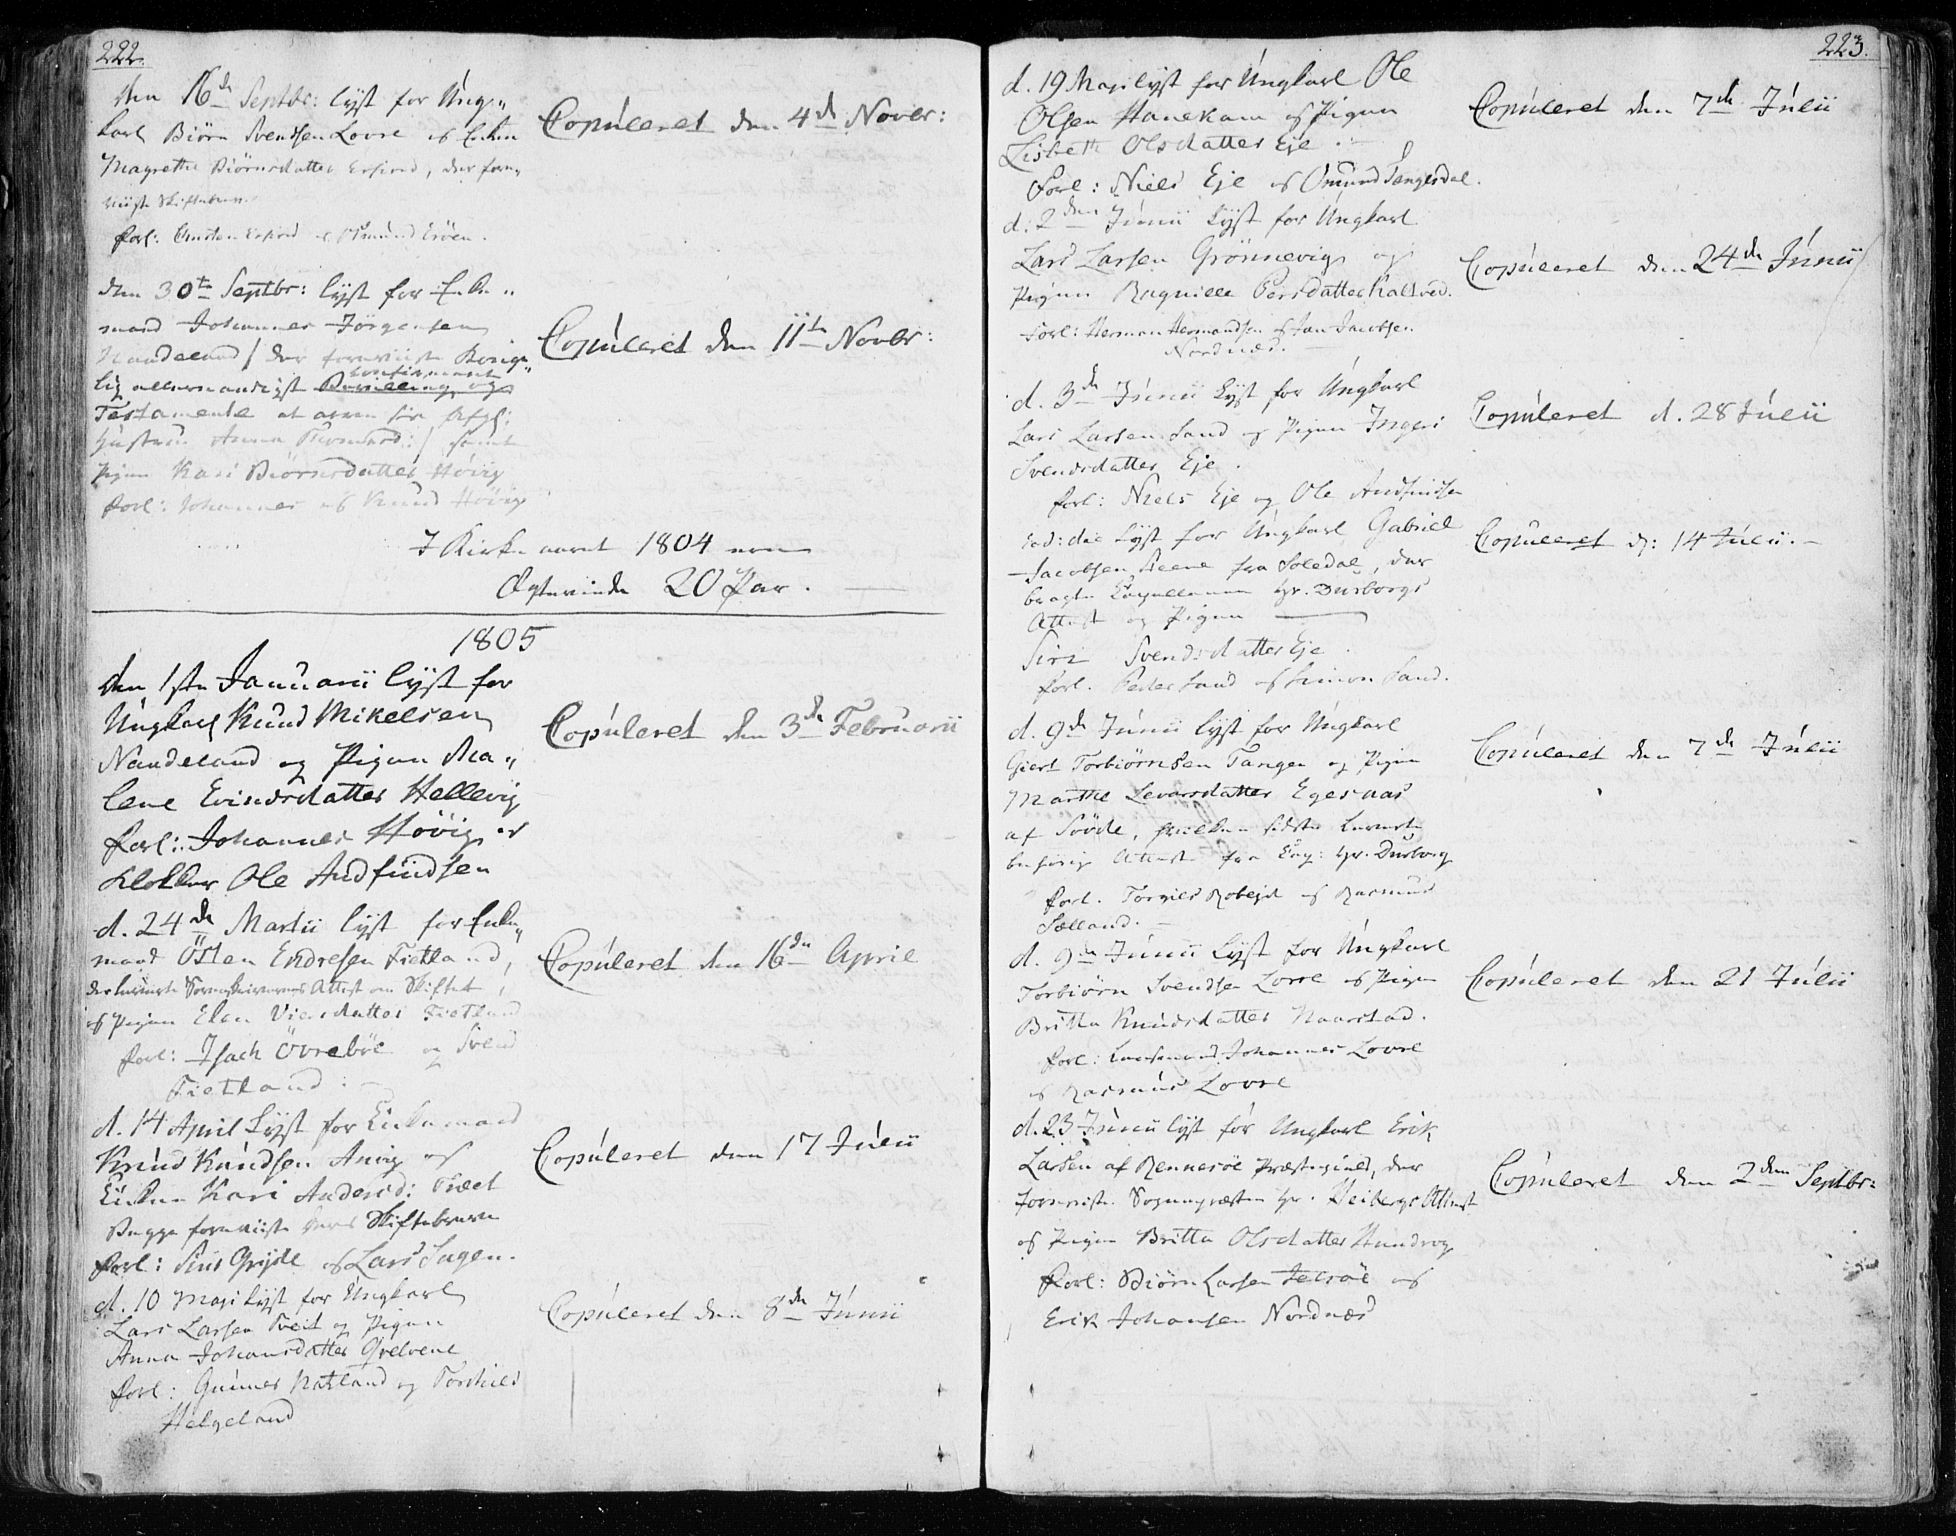 222.
den 16de Septbr: lyst for Ung„
karl Biørn Svendsen Lovre og Enken
Magrethe Biørnsdatter Erfiord, der forre„
viiste Skiftebrev.
forl: Erfiord og Osmund Erøen.
Copuleret den 4de Novbr:
den 30te Septbr: lyst for Enke„
mand Johannes Jørgensen
Naadeland / der foreviiste Konge„
lig allernaadigst Bevilling og
confirmeret
Testamente at arve sin Afgl:
Hustrue Anna :/ samt
Pigen Kari Biørnsdatter Høvig
forl: Johannes og Knud Høvig
Copuleret den 11te Novbr:
I Kirke aaret 1804 ere
Ægteviede 20 Par.
1805
den 1ste Januarii lyst for
Ungkarl Knud Mikelsen
Naadeland og Pigen Ma„
lene Evindsdatter Hellevig
forl: Johannes Høvig og
Klokker Ole Audfindsen
Copuleret den 3de Februarii
d. 24de Martii lyst for Enke„
mand Østen Endresen Fietland,
der leverte Sorenskriverens Attest om Skiftet,
og Pigen Elen Viersdatter Fietland
forl: Isach Øvrebøe og Svend
Fietland.
Copuleret den 16de April
d. 14 April Lyst for Enkemand
Knud Knudsen Anvig og
Enken Kari Andersd: Tvæt
Begge foreviiste deres Skiftebreve
forl: Siur Gryde og Lars Sagen.
Copuleret den 17 Julii
d. 10 Maji Lyst for Ungkarl
Lars Larsen Tveit og Pigen
Anna Johansdatter Qvelvene
forl: Gunner Natland og Torkild
Helgeland
Copuleret den 8de Junii
223.
d. 19 Maji lyst for Ungkarl Ole
Olsen Hanekam og Pigen
Lisbeth Olsdatter Eje.
Forl: Niels Eje og Omund Tengesdal.
Copuleret den 7de Julii
d: 2den Junii Lyst for Ungkarl
Lars Larsen Grønnevig og
Pigen Ragnille Persdatter Kaltved.
Forl: Herman Hermandsen og Jan Jacobsen
Nordnæs.
Copuleret den 24de Junii
d. 3de Junii Lyst for Ungkarl
Lars Larsen Sand og Pigen Ingeri
Svendsdatter Eje.
forl: Niels Eje og Ole Audfindsen
Copuleret d. 28 Julii
Eod: die Lyst for Ungkarl Gabriel
Jacobsen Steene fra Soledal, der
bragte Capellanen Hr. Duborgs
Attest og Pigen
Siri Svendsdatter Eje.
forl. Peder Sand og Simon Sand.
Copuleret d: 14 Julii.
d. 9de Junii lyst for Ungkarl
Giert Torbiørnsen Tangen og Pigen
Marthe Levarsdatter Egenæs
af Søvde, hvilken sidste leverte
behørig Attest fra Cap: Hr. Duborg
forl. Torgiels Robejst og Rasmus
Sælland.
Copuleret den 7de Julii
d. 9de Junii Lyst for Ungkarl
Torbiørn Svendsen Lovre og Pigen
Britta Knudsdatter Naarstad.
forl: Lensmand Johannes Lovre
og Rasmus Lovre
Copuleret den 21 Julii
d. 23 Junii lyst for Ungkarl Erik
Larsen af Rennesøe Præstegield, der
foreviste Sognepræsten Hr. Heibergs Attest
og Pigen Britta Olsdatter Hundvog
forl: Biørn Larsen Jelsøe og
Erik Johansen Nordnæs
Copuleret den 2den Septbr: